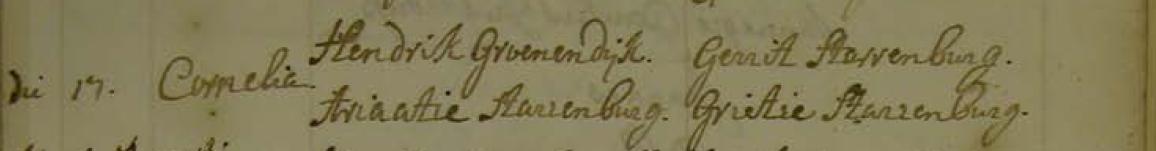 Hendrik Groenendijk. Gerrit Starrenburg.
die 17. Cornelia.
Ariaatie Starrenburg. Grietie Starrenburg.